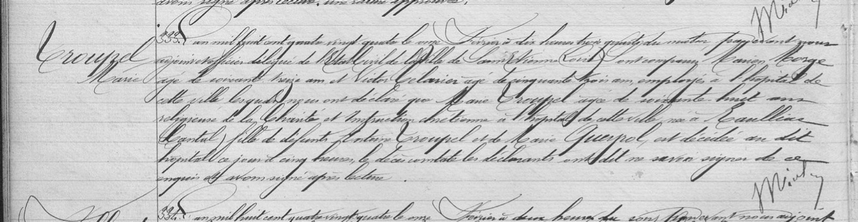 avons signé après lecture, une rature approuvée.
332 L'an mil huit cent quatre vingt quatre le onze Février à dix heures trois quarts du matin pardevant nous
Troupel adjoint officier délégué de l'État Civil de la Ville de Saint Étienne (Loire) ont comparu Marien Morge
Marie âgé de soixante treize ans et Victor Celarier âgé de cinquante trois ans employés à l'hôpital de
cette ville lesquels nous ont déclaré que Marie Troupel âgée de soixante huit ans
religieuse de la Charité et Instruction chrétienne à l'hôpital de cette ville, née à
(Cantal) fille de défunts Antoine Troupel et de Marie est décédée au dit
hôpital ce jour à cinq heures, le décès constaté les déclarants ont dit ne savoir signer de ce
enquis et avons signé après lecture.
333 L'an mil huit cent quatre vingt quatre le onze Février à deux heures du soir pardevant nous adjoint